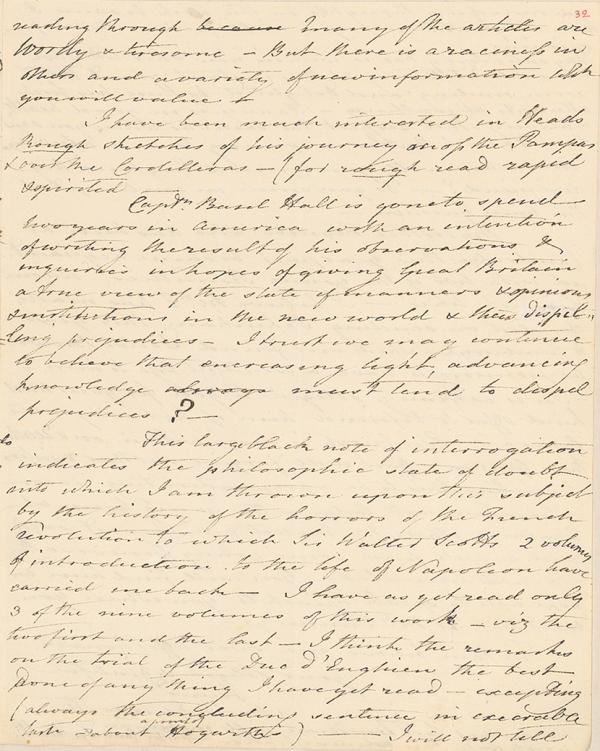 32
reading through because many of the articles are
wordy & tiresome – But there is a raciness in
others and a variety of new information which
you will value
I have been much interested in Heads
Rough sketches of his journey across the Pampas
& over the Cordilleras – (for rough read rapid
& spirited
Captn. Basil Hall is gone to spend
two years in America with an intention
of writing the result of his observations &
inquiries in hopes of giving Great Britain
a true view of the state of manners & opinions
& institutions in the new world & thus dispel-
ling prejudices – I trust we may continue
to believe that encreasing light, advancing
knowledge always must tend to dispel
prejudices ? –
This large black note of interrogation
indicates the philosophic state of doubt
into which I am thrown upon this subject
by the history of the horrors of the French
revolution to which Sir Walter Scotts 2 volumes
of introduction to the life of Napoleon have
carried me back – I have as yet read only
3 of the nine volumes of this work – viz the
two first and the last – I think the remarks
on the trial of the Duc d'Enghien the best
done of any thing I have yet read – excepting
(always the concluding sentence in execrable
taste – about a print of Hogarth's) – I will not tell